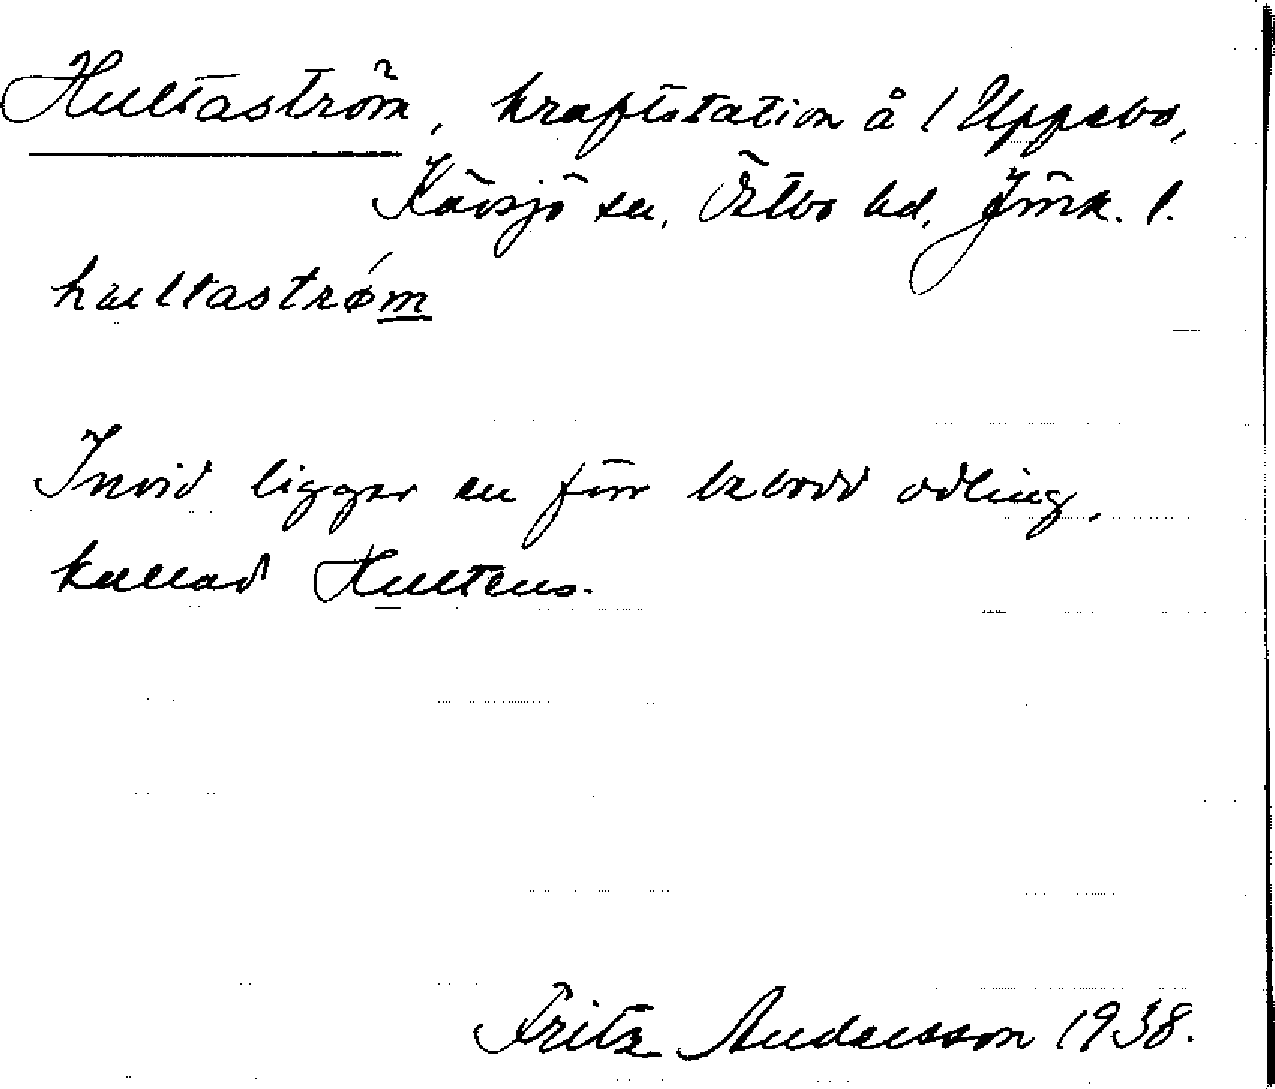 Hultaström, kraftstation å 1 Uppebo,
Kävsjö sn, Östbo hd, Jönk. l.
hulltastrø´m
Invid ligger en förr bebodd odling,
kallad Hultens.
Fritz Andersson 1938.